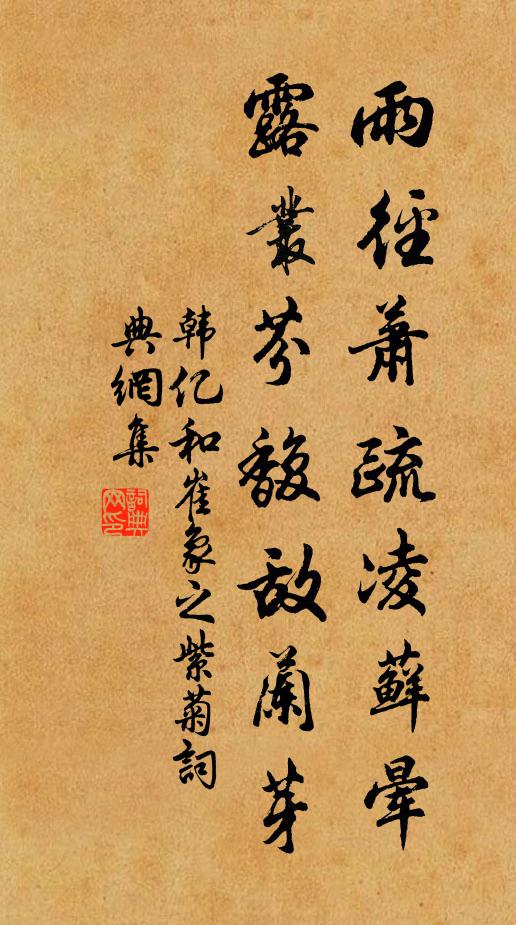 雨徑蕭疏凌蘚暈
露叢芬馥敵蘭芽
韩亿和崔象之紫菊詞
典網集
詞典網印